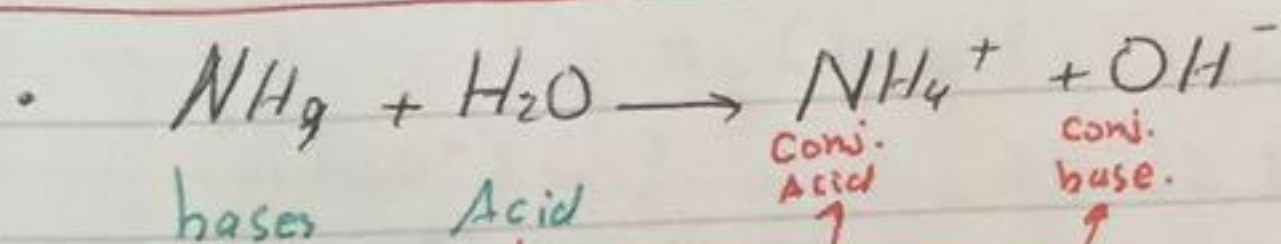 • NH₉ + H₂O → NH₄⁺ + OH⁻
bases Acid Conj. Acid conj. base.